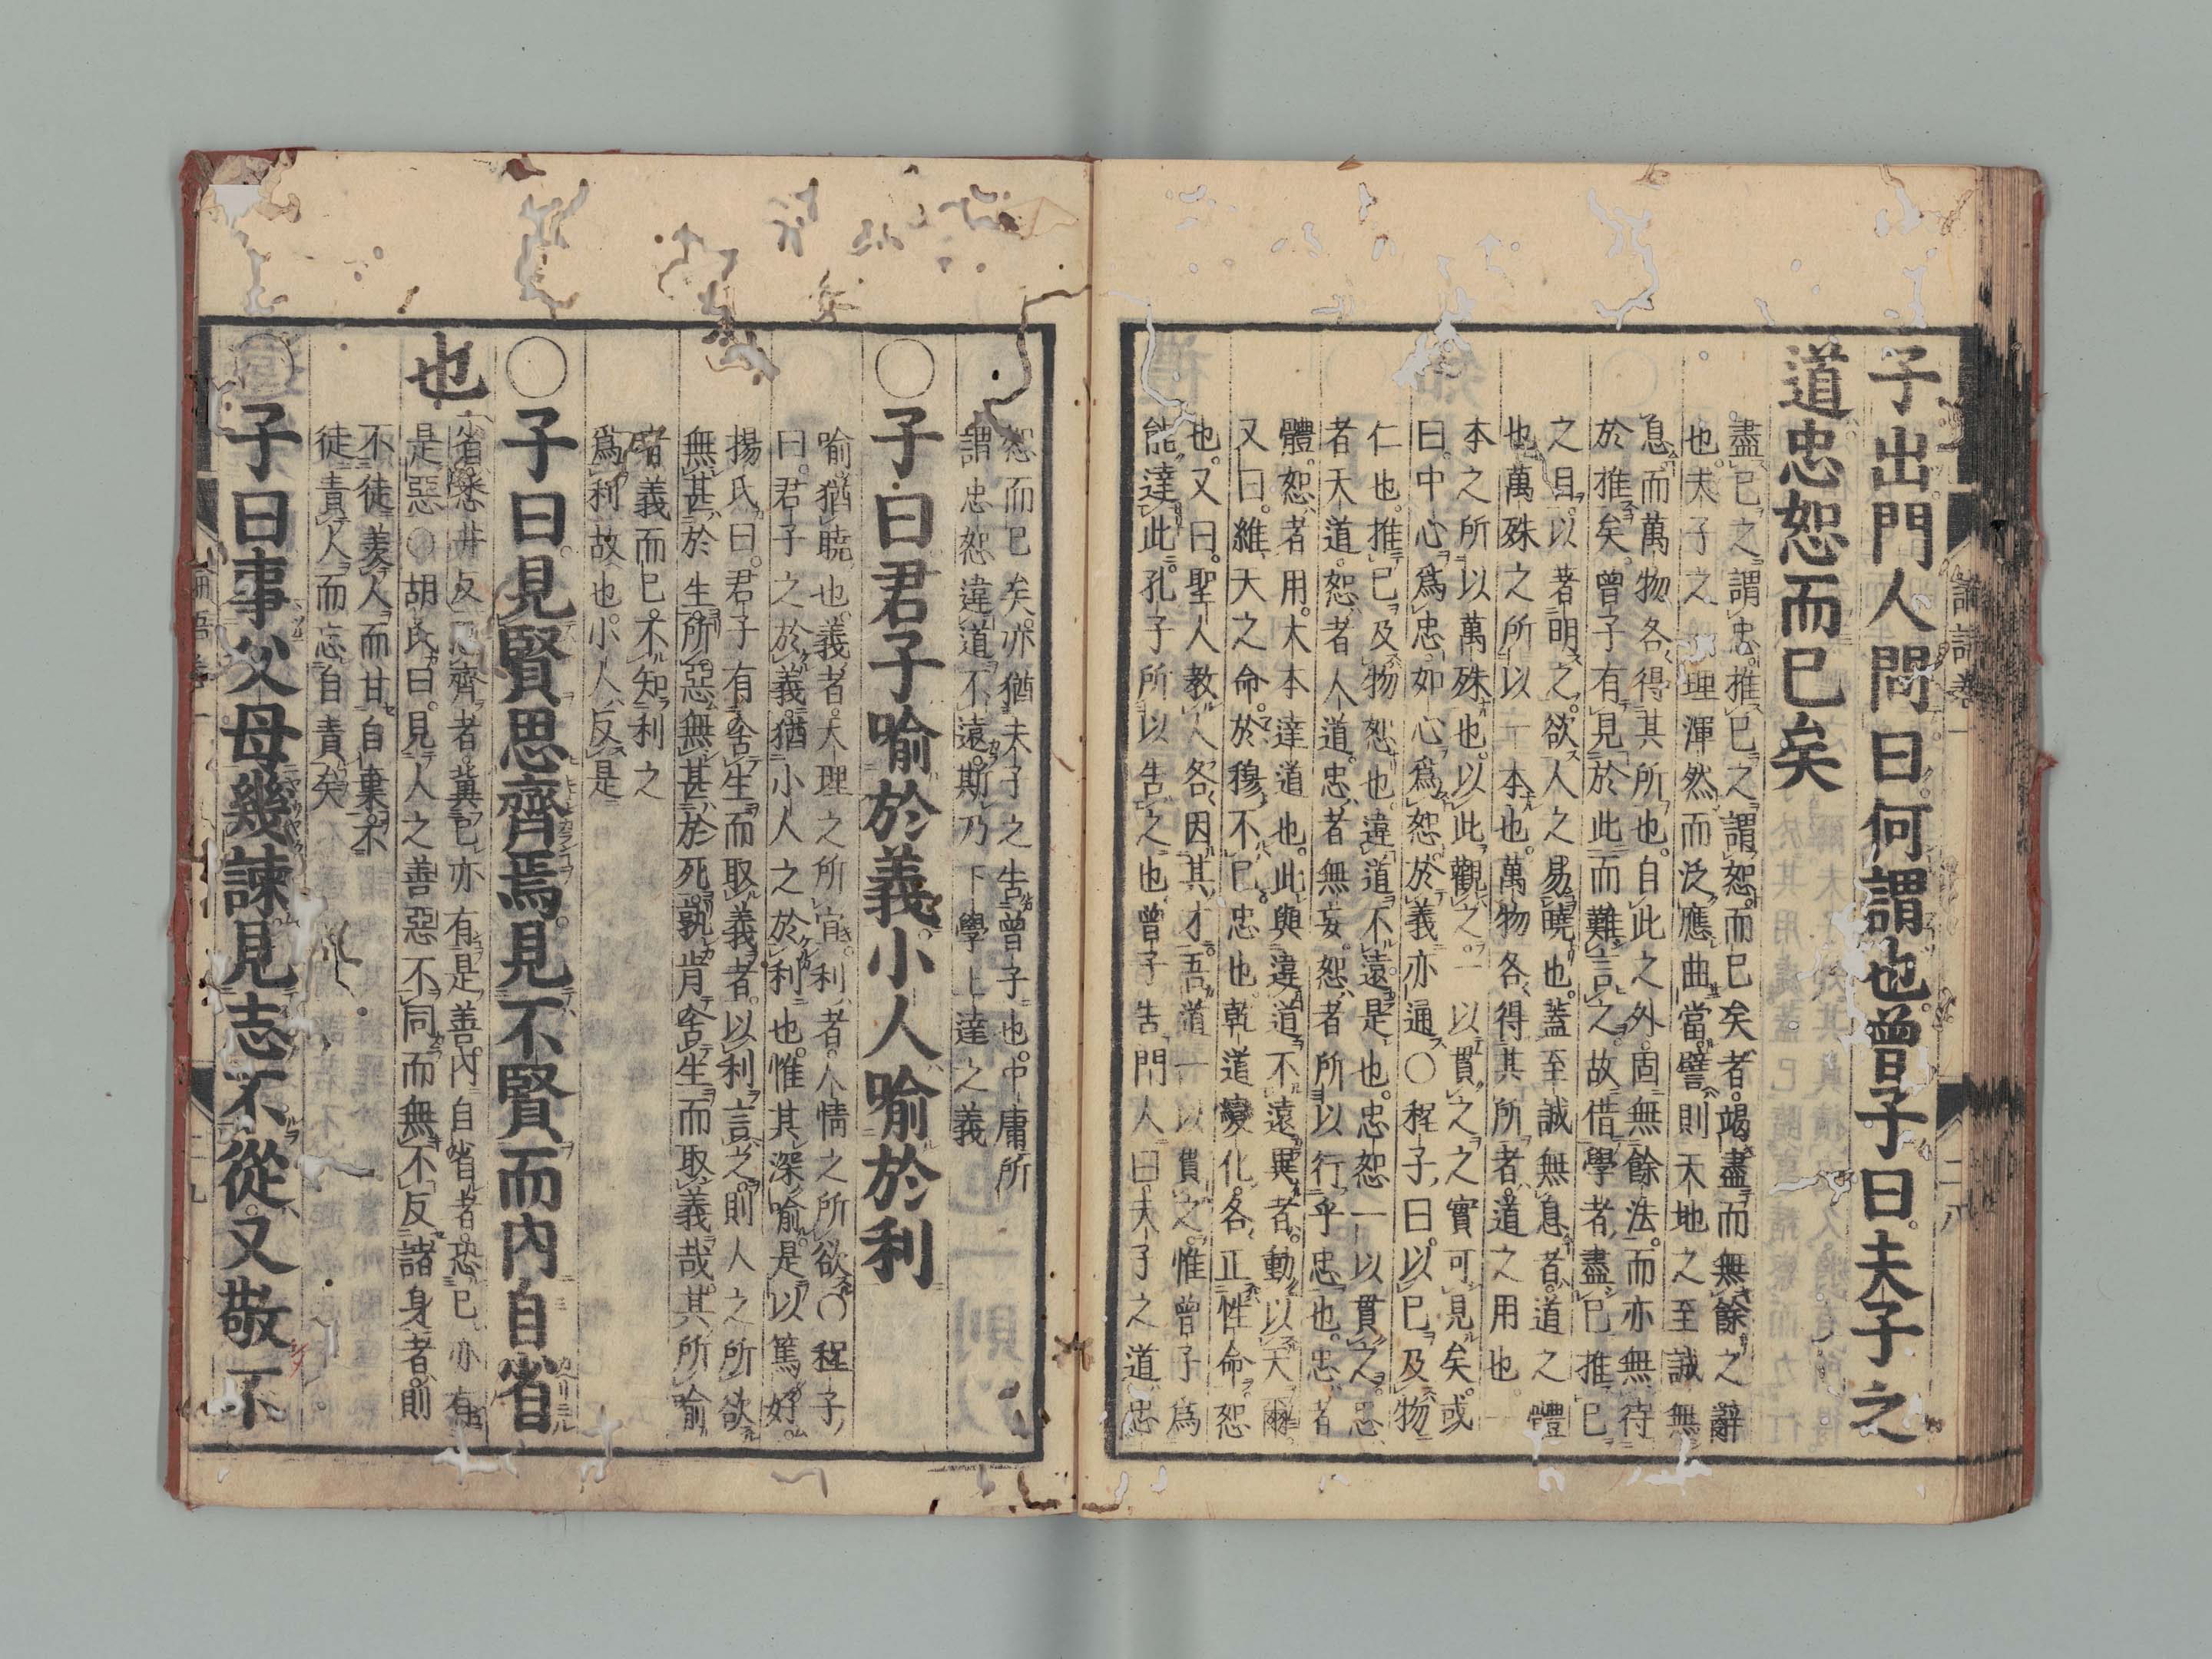 子出門人問曰何謂也曾子曰夫子之
道忠恕而已矣
盡己之謂忠推己之謂恕而已矣者竭盡而無餘之辭
也夫子之理渾然而泛應曲當譬則天地之至誠無
息而萬物各得其所也自此之外固無餘法而亦無待
於推矣曾子有見於此而難言之故借學者盡己推己
之目以著明之欲人之易曉也蓋至誠無息者道之體
也萬殊之所以一本也萬物各得其所者道之用也一
本之所以萬殊也以此觀之一以貫之之實可見矣或
曰中心爲忠如心爲恕於義亦通○程子曰以己及物
仁也推己及物恕也違道不遠是也忠恕一以貫之忠
者天道恕者人道忠者無妄恕者所以行乎忠也忠者
體恕者用大本達道也此與違道不遠異者動以天爾
又曰維天之命於穆不已忠也乾道變化各正性命恕
也又曰聖人教人各因其才吾道一以貫之惟曾子爲
能達此孔子所以告之也曾子告門人曰夫子之道忠
恕而已矣亦猶夫子之告曾子也中庸所
謂忠恕違道不遠斯乃下學上達之義
○子曰君子喻於義小人喻於利
喻猶曉也義者天理之所宜利者人情之所欲○程子
曰君子之於義猶小人之於利也惟其深喻是以篤好
揚氏曰君子有舍生而取義者以利言之則人之所欲
無甚於生所惡無甚於死孰肯舍生而取義哉其所喻
者義而已不知利之
爲利故也小人反是
○子曰見賢思齊焉見不賢而内自省
也
省悉井反思齊者冀己亦有是善内自省者恐己亦有
是惡○胡氏曰見人之善惡不同而無不反諸身者則
不徒羨人而甘自棄不
徒責人而忘自責矣
○子曰事父母幾諫見志不從又敬不